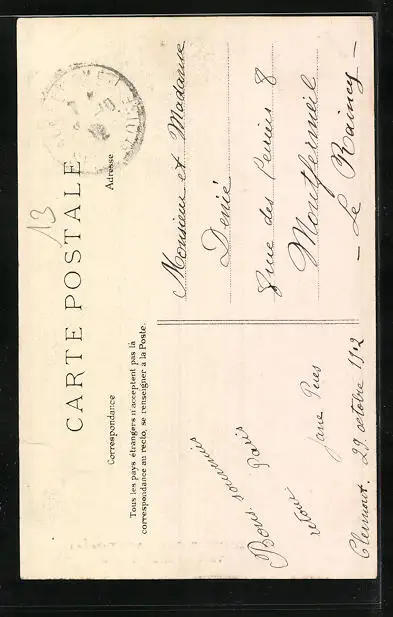 CARTE POSTALE
13
Correspondance
Adresse
Tous les pays étrangers n'acceptent pas la
correspondance au recto, se renseigner à la Poste.
Bons souvenirs
Paris
retour
Clermont. 29 octobre 1912
Monsieur et Madame
Denié
8 rue des 8
Montfermeil
– Le Raincy –